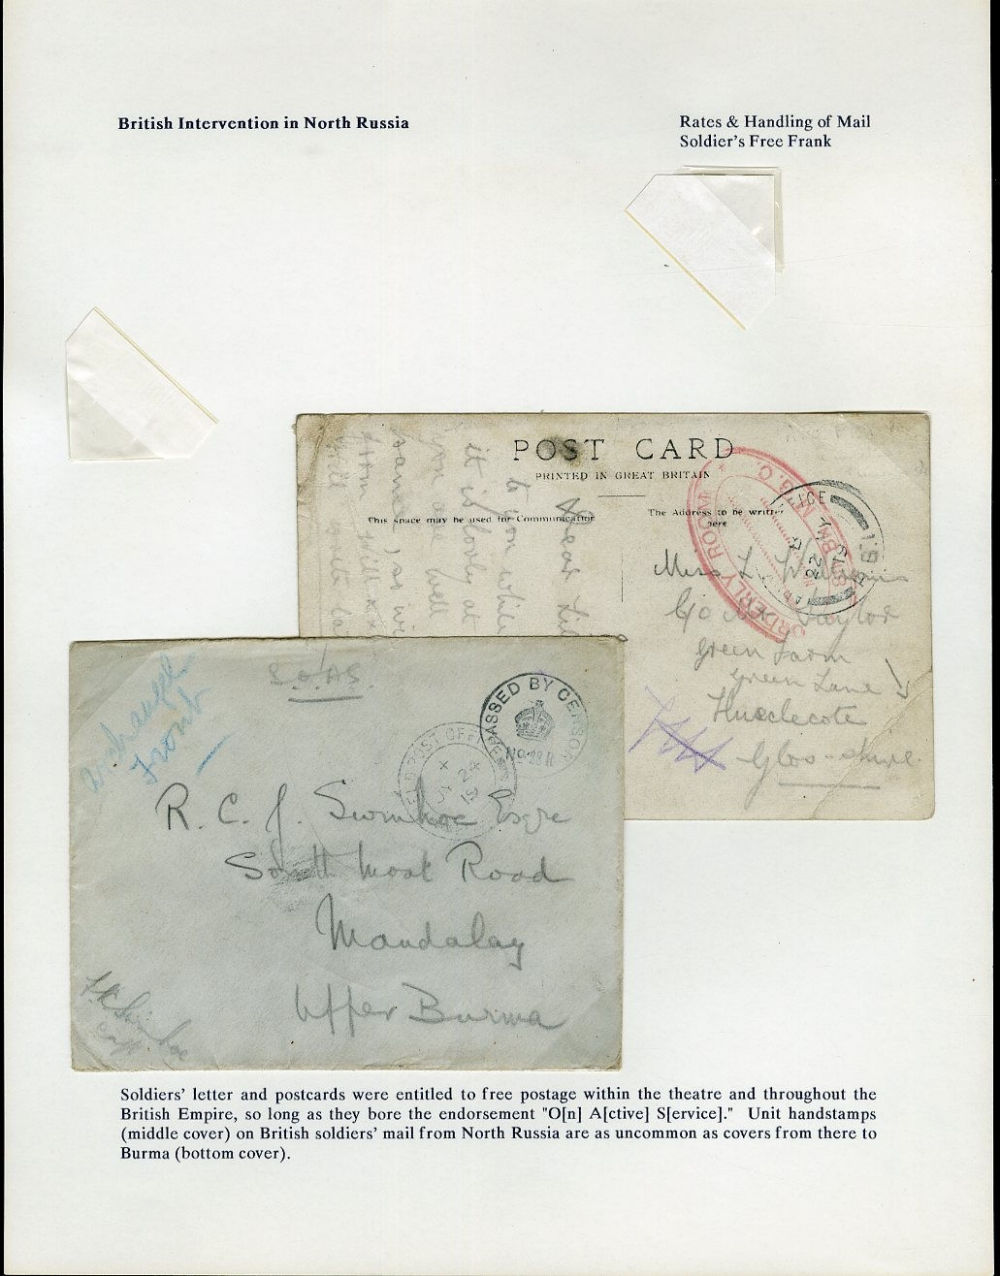 British Intervention in North Russia
Rates & Handling of Mail
Soldier's Free Frank
POST CARD
PRINTED IN GREAT BRITAIN
This space may be used for Communication
The Address to be written
here
ORDERLY ROOM
Miss L.
C/o Mr Taylor
Green Farm
Green Lane
Hucclecote
Glos-shire
Dear
to you while
it is lovely at
you are well
same, as
from
PASSED BY CENSOR
FIELD POST OFFICE
24
19
Front
R. C. J. Swinhoe Esqre
South Moat Road
Mandalay
Upper Burma
Soldiers' letter and postcards were entitled to free postage within the theatre and throughout the
British Empire, so long as they bore the endorsement "O[n] A[ctive] S[ervice]." Unit handstamps
(middle cover) on British soldiers' mail from North Russia are as uncommon as covers from there to
Burma (bottom cover).